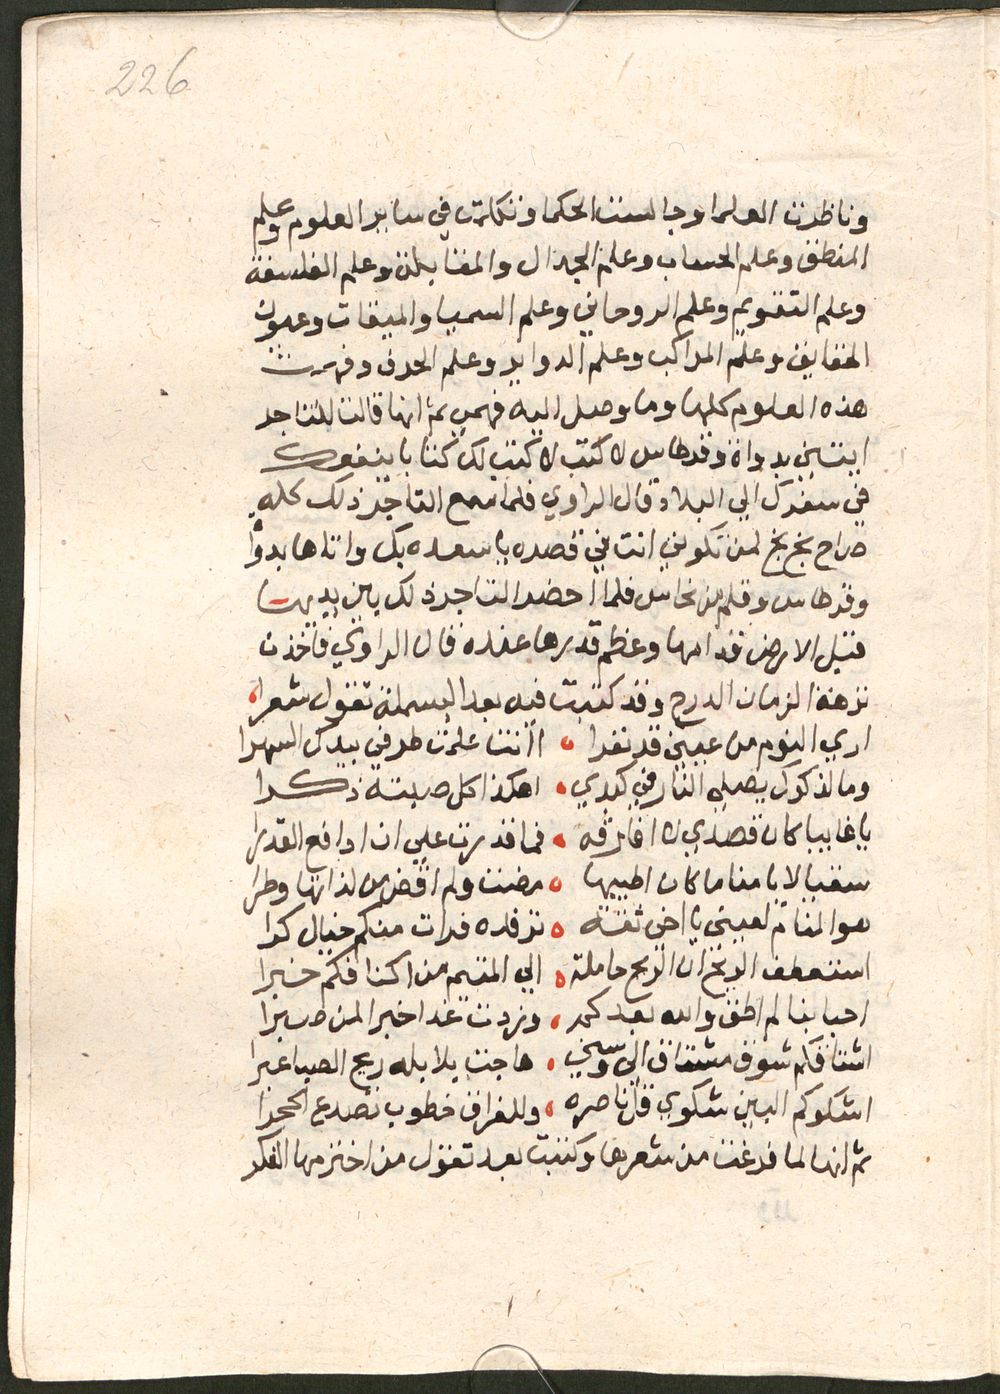 226
وناظرت العلما وجالست الحكما وتكلمت في ساير العلوم وعلم
المنطق وعلم الحساب وعلم الجدال والمقابلة وعلم الفلسفة
وعلم التقويم وعلم الروحاني وعلم السميا والميقات وعيون
الحقايق وعلم المراكب وعلم الدواير وعلم الحرف وفهمت
هذه العلوم كلها وما وصل اليه فهمي ثم انها قالت للتاجر
ايتيني بدواة وقرطاس لاكتب لك كتابا ينفعك
في سفرك الي البلاد قال الراوي فلما سمع التاجر ذلك كله
صاح بخ بخ لمن تكوني انت في قصره يا سعده بك واتاها بدواة
وقرطاس وقلم من نحاس فلما احضر التاجر ذلك بين يديها
قبل الارض قدامها وعظم قدرها عنده قال الراوي فاخذت
نزهة الزمان الدرج وقد كتبت فيه بعد البسملة تقول شعرا
اري النوم من عيني قد نفرا • اانت علمت طرفي بعدك السهرا
وما لذكرك يصلي النار في كبدي • اهكذا كل صب ذكرا
يا غايبا كان قصدي لا افارقه • فما قدرت علي ان ادافع القدرا
سقيا لايامنا ما كان اطيبها • مضت ولم اقض من لذاتها وطرا
استعطف الريح ان الريح حاملة • الي المتيم من اكنافكم خبرا
اشتاقكم شوق مشتاق الي • هاجت بلابله ريح الصبا
اشكوكم البين شكوي ناصره • وللفراق خطوب تصدع الحجرا
ثم انها لما فرغت من شعرها وكتبت بعد تقول من اختزمها الفكر